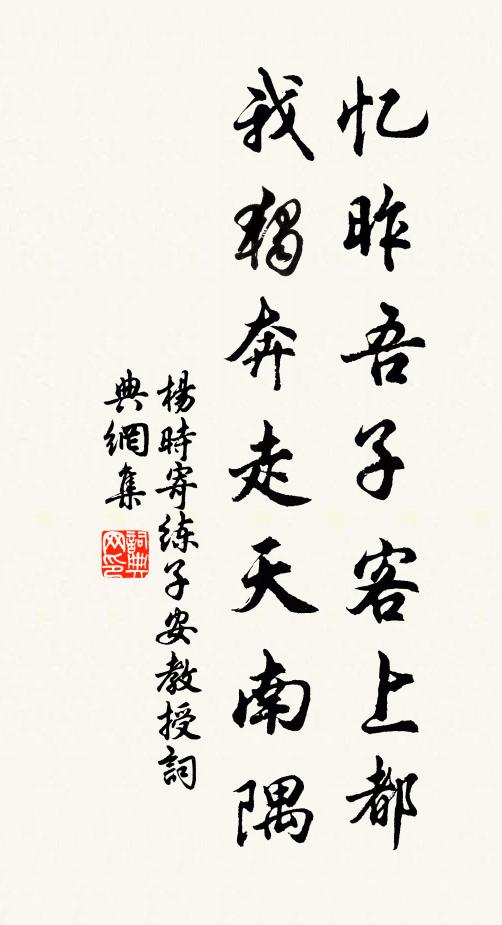 忆昨吾子客上都
我獨奔走天南隅
楊時寄练子安教授詞
典網集
詞典网印